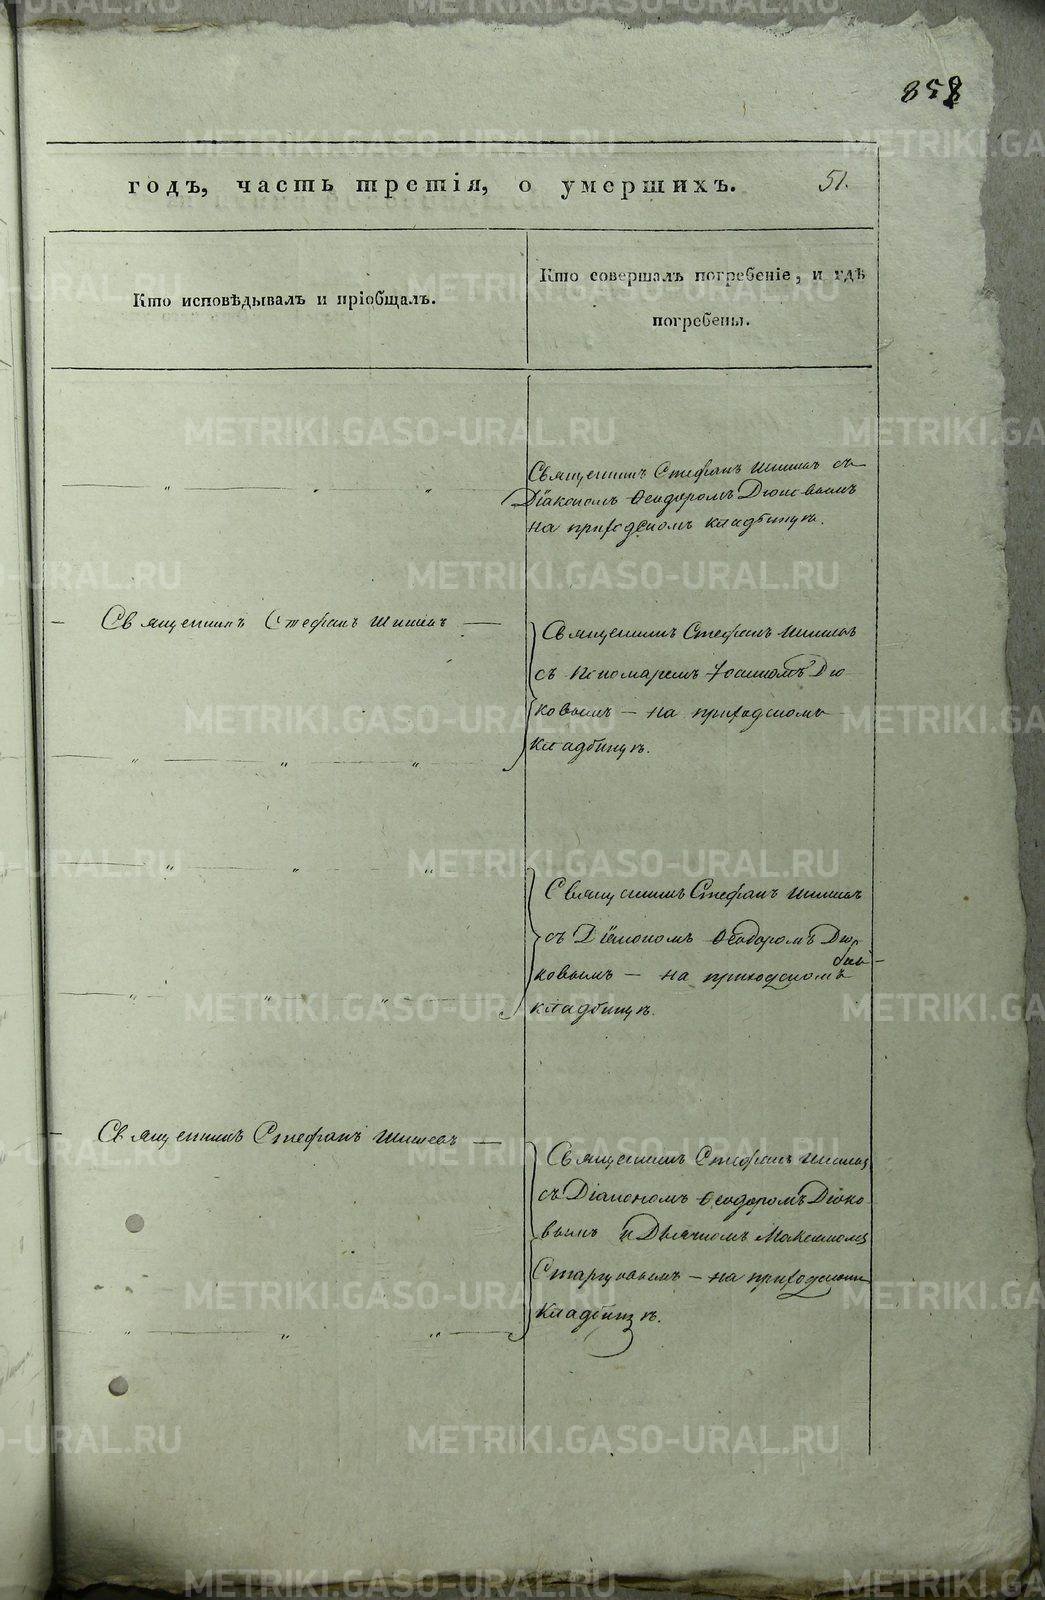 858
годъ, часть третія, о умершихъ. 51.
Кто исповѣдывалъ и пріобщалъ.
Кто совершалъ погребеніе, и гдѣ
погребены.
Священникъ Стефанъ Шишевъ съ
Діакономъ Ѳеодоромъ Дюковымъ
на приходскомъ кладбищѣ.
Священникъ Стефанъ Шишевъ
Священникъ Стефанъ Шишевъ
съ Пономаремъ Іоанномъ Дю
ковымъ — на приходскомъ
кладбищѣ.
Священникъ Стефанъ Шишевъ
съ Діакономъ Ѳеодоромъ Дю
ковымъ — на приходскомъ
кладбищѣ.
Священникъ Стефанъ Шишевъ
Священникъ Стефанъ Шишевъ
съ Діакономъ Ѳеодоромъ Дюко
вымъ и Дьячкомъ Максимомъ
Старцовымъ — на приходскомъ
кладбищѣ.
METRIKI.GASO-URAL.RU